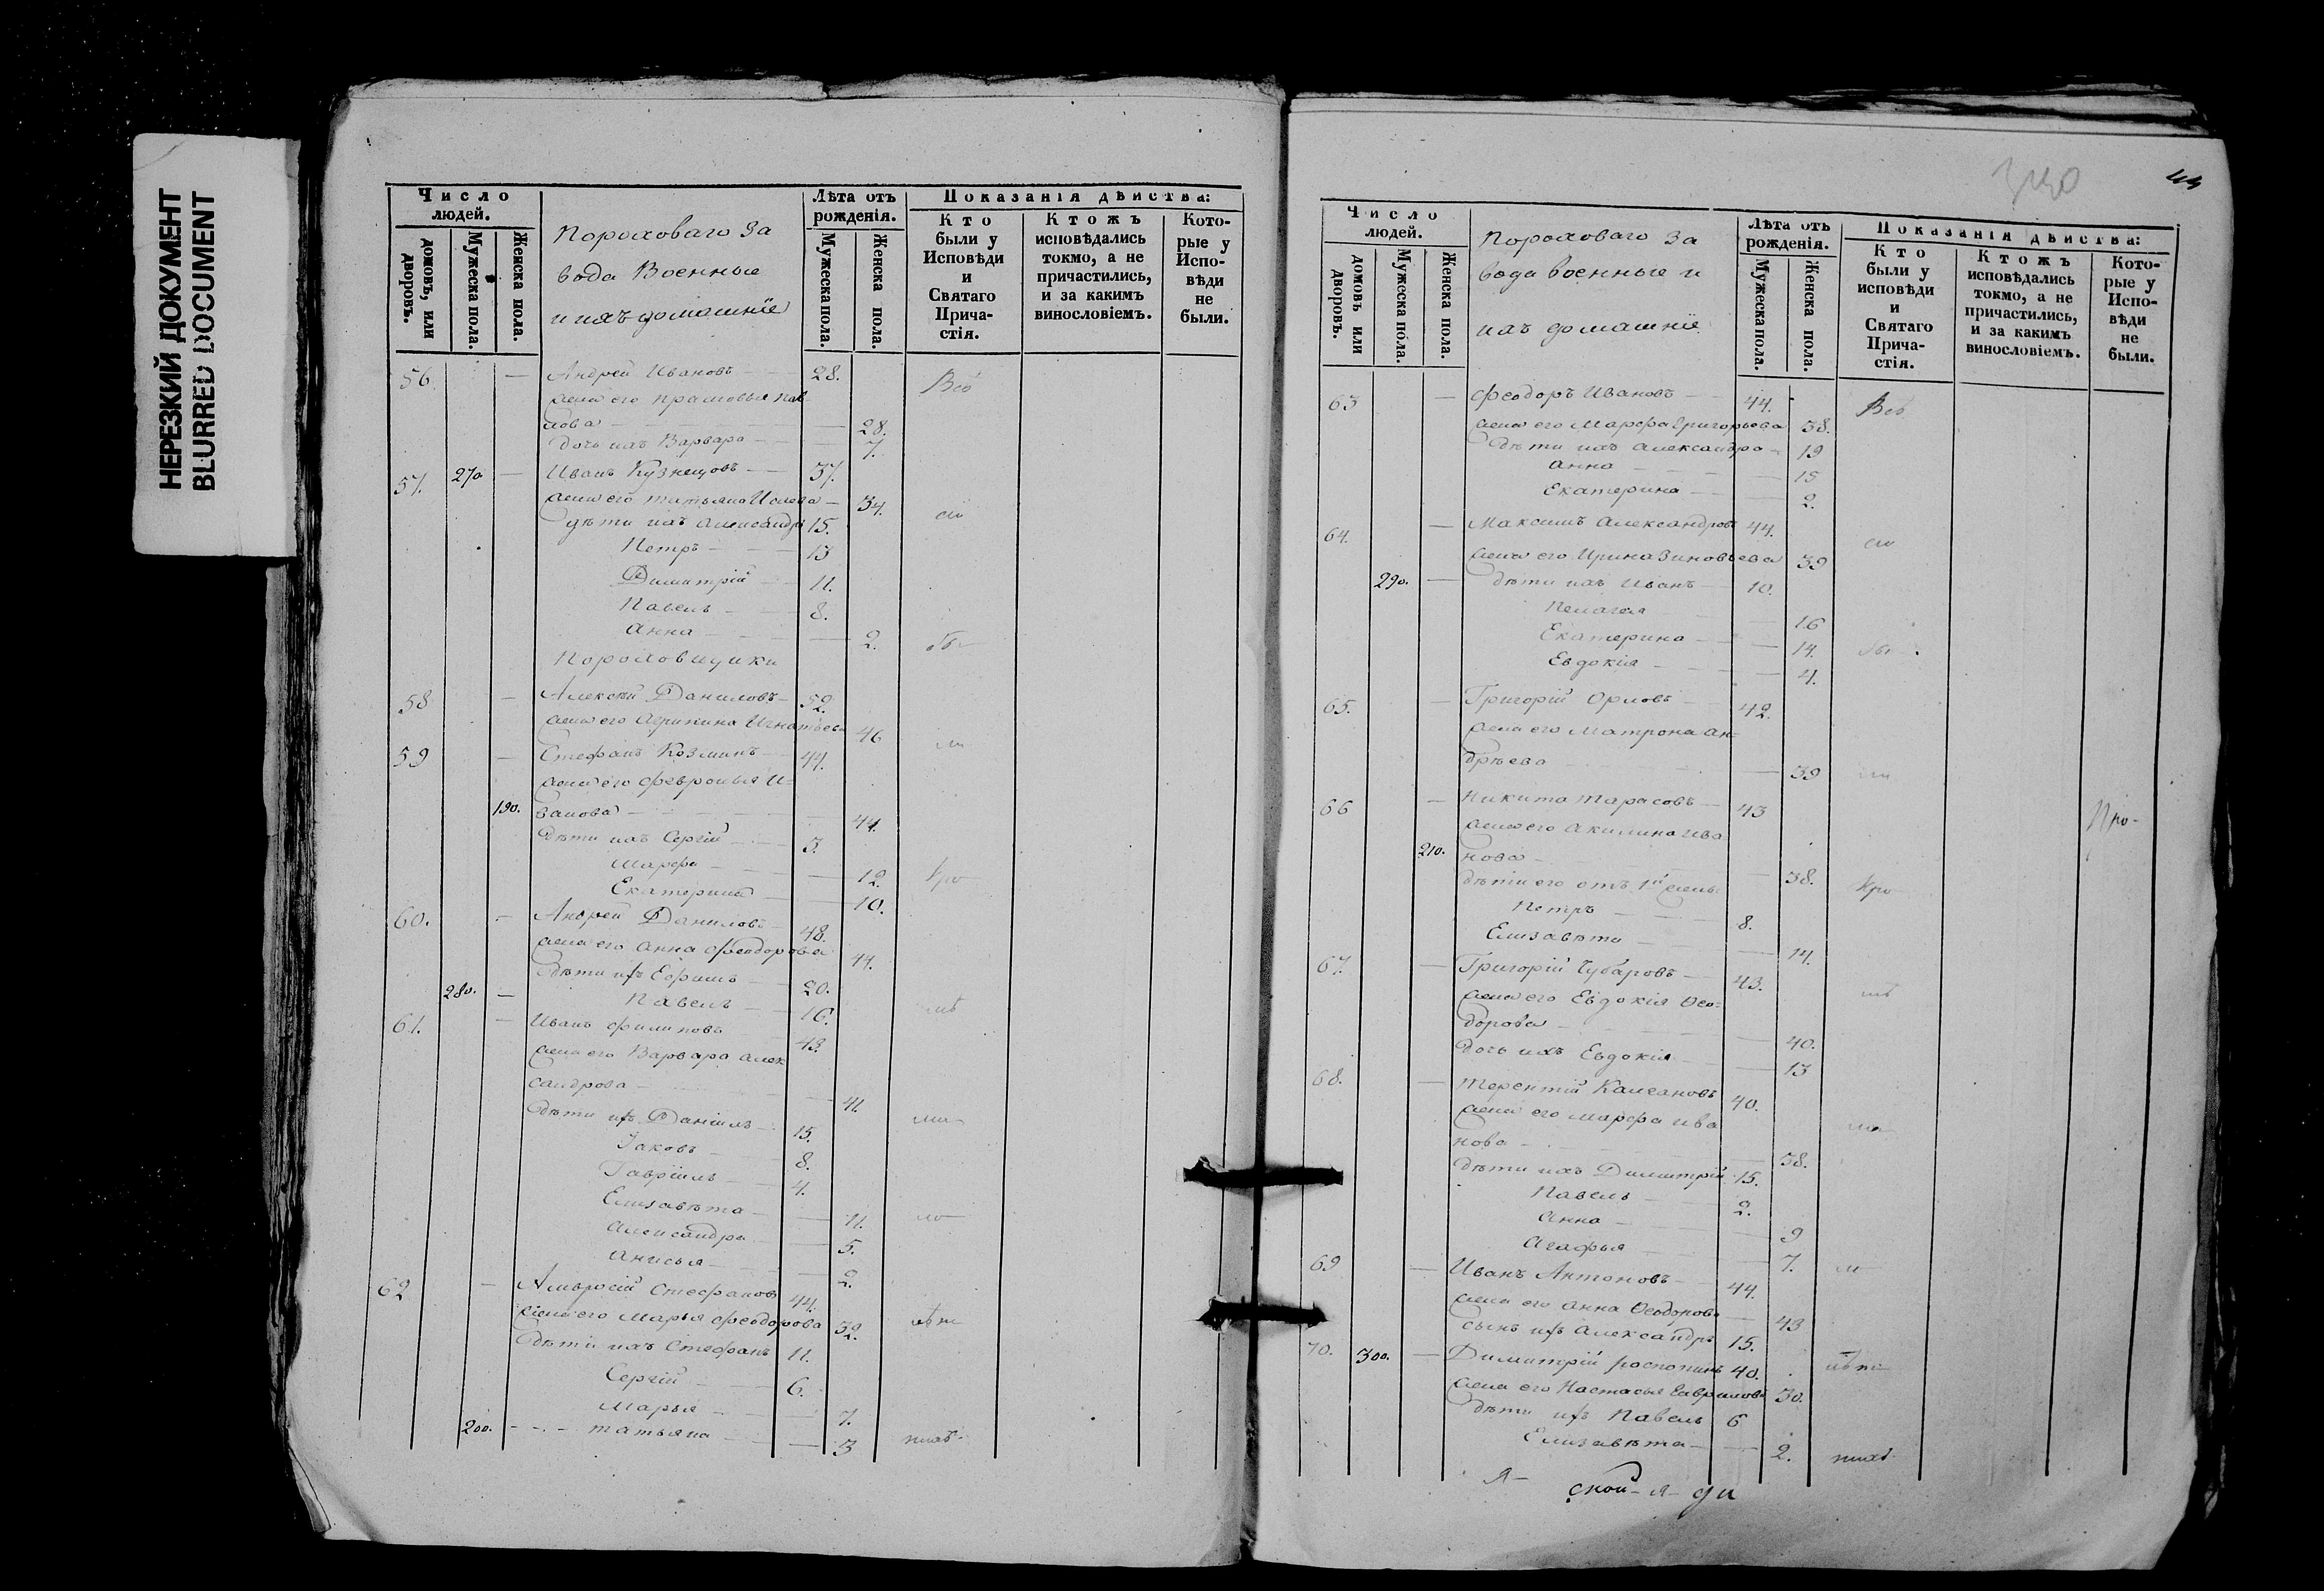 НЕРЕЗКИЙ ДОКУМЕНТ
BLURRED DOCUMENT
Число людей.
домовъ, или дворовъ.
Мужеска пола.
Женска пола.
Пороховаго за
вода Военные
и ихъ домашніе
Лѣта отъ рожденія.
Мужеска пола.
Женска пола.
Показанія дѣйства:
Кто были у Исповѣди и Святаго Прича-стія.
Ктожъ исповѣдались токмо, а не причастились, и за какимъ винословіемъ.
Кото-рые у Испо-вѣди не были.
56. — Андрей Ивановъ — 28. Всѣ
жена его
лова — 28.
дочь ихъ Варвара — 7.
57. 270 — Иванъ Кузнецовъ — 37.
жена его Татьяна — 34.
дѣти ихъ Александръ 15.
Петръ — 13
Димитрій — 11.
Павелъ — 8.
Анна — 2.
Пороховщики
58 — Алексѣй Даниловъ — 52.
жена его Агрипина Игнатьева 46
59 — Стефанъ Козминъ — 44.
жена его Февронья И=
190. ванова — 44.
дѣти ихъ Сергій — 3.
Марфа — 12.
Екатерина — 10.
60. — Андрей Даниловъ — 48.
жена его Анна Феодорова 44.
дѣти ихъ Ефимъ — 20.
280. — Павелъ — 16.
61. — Иванъ Филиповъ 43.
жена его Варвара Алек
сандрова — 41.
дѣти ихъ Даніилъ — 15.
Іаковъ — 8.
Гавріилъ — 4.
Елизавѣта — 11.
Александра — 5.
Анисья — 2.
62 — Амвросій Стефановъ 44.
жена его Марья Феодорова 32.
дѣти ихъ Стефанъ 11.
Сергій — 6.
Марья — 7.
200. — Татьяна — 3
44
Число людей.
домовъ или дворовъ.
Мужеска пола.
Женска пола.
Пороховаго за
вода военные и
ихъ домашніе
Лѣта отъ рожденія.
Мужеска пола.
Женска пола.
Показанія дѣйства:
Кто были у исповѣди и Святаго Прича-стія.
Ктожъ исповѣдались токмо, а не причастились, и за какимъ винословіемъ.
Кото-рые у Испо-вѣди не были.
63 — Феодоръ Ивановъ — 44. Всѣ
жена его Марфа Григорьева 38.
дѣти ихъ Александра — 19
Анна — 15
Екатерина — 2.
64. — Максимъ Александровъ 44.
жена его Ирина Зиновьева 39
290. — дѣти ихъ Иванъ — 10.
Пелагея — 16
Екатерина — 14.
Евдокія — 4.
65. — Григорій Орловъ — 42.
жена его Матрона Ан=
дрѣева — 39
66 — Никита Тарасовъ — 43
жена его Акилина Ива
210. нова — 38.
дѣти его отъ 1й жены
Петръ — 8.
Елизавѣта — 14.
67. — Григорій Чубаровъ — 43.
жена его Евдокія Ѳео=
дорова — 40.
дочь ихъ Евдокія — 13
68. — Терентій 40.
жена его Марфа Ива
нова — 38.
дѣти ихъ Димитрій 15.
Павелъ — 2.
Анна — 9
Агафья — 7.
69 — Иванъ Антоновъ — 44.
жена его Анна Ѳеодорова 43
сынъ ихъ Александръ 15.
70. 300. — Димитрій 40.
жена его Настасья Гаврилова 30.
дѣти ихъ Павелъ 6
Елизавѣта — 2.